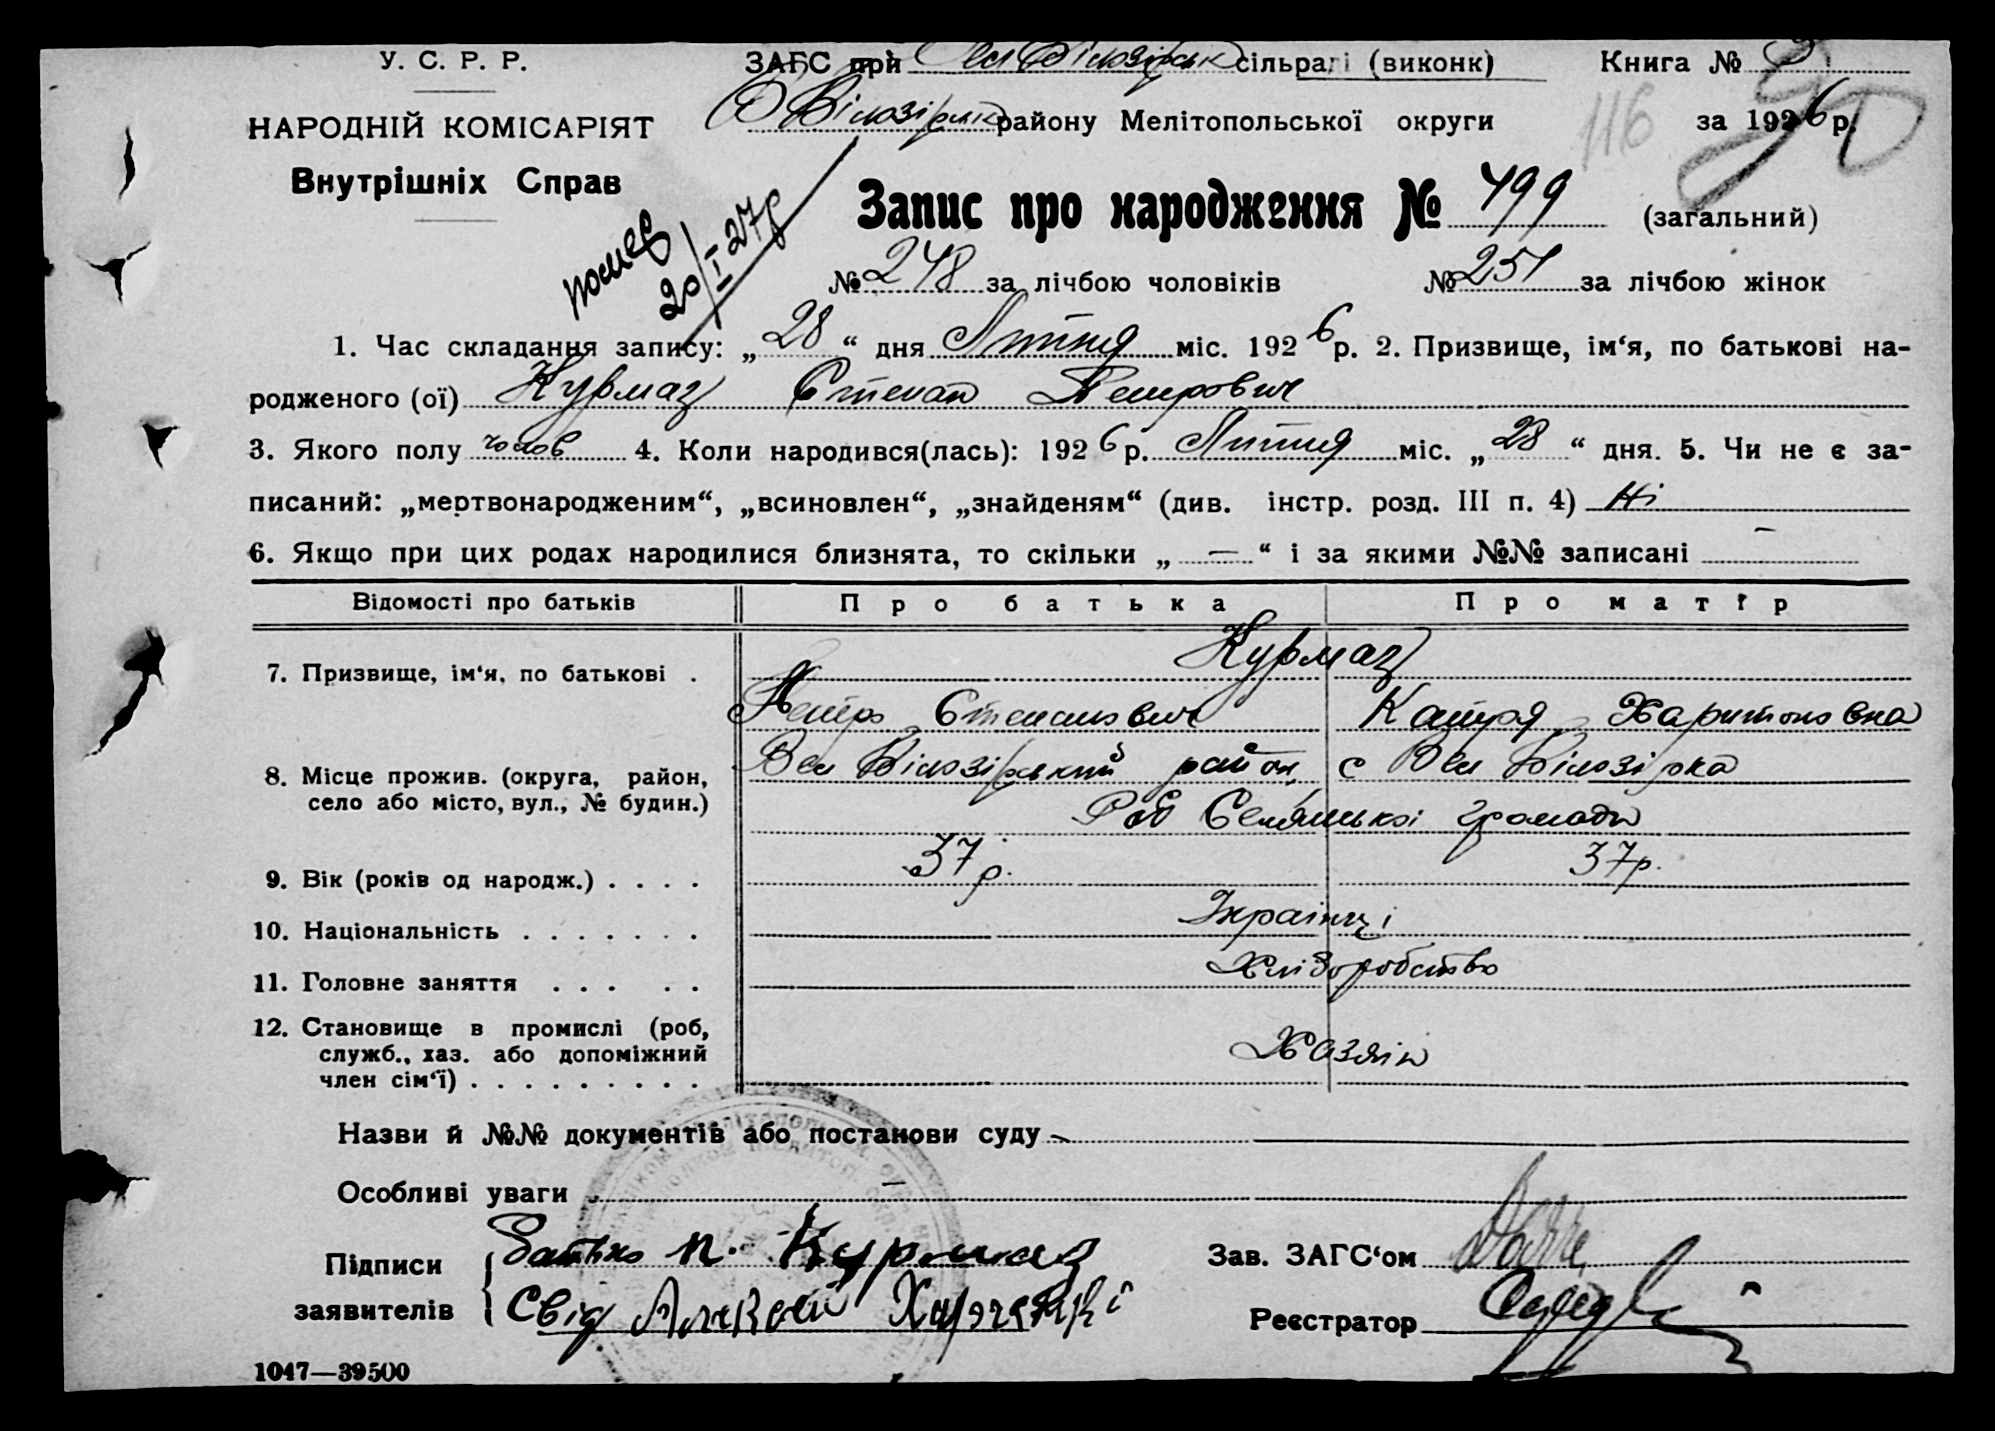 У. С. Р. Р.
НАРОДНІЙ КОМІСАРІЯТ
Внутрішніх Справ
ЗАГС при Вел Білозірськ сільраді (виконк) Книга №
В Білозірськ району Мелітопольської округи за 1926 р.
116
Запис про народження № 499 (загальний)
помер
20/I 27р
№ 248 за лічбою чоловіків № 251 за лічбою жінок
1. Час складання запису: „28“ дня Липня міс. 1926 р. 2. Призвище, ім‘я, по батькові на-
родженого (ої) Курмаз Степан Петрович
3. Якого полу чолов 4. Коли народився(лась): 1926 р. Липня міс. „28“ дня. 5. Чи не є за-
писаний: „мертвонародженим“, „всиновлен“, „знайденям“ (див. інстр. розд. III п. 4) Ні
6. Якщо при цих родах народилися близнята, то скільки „—“ і за якими №№ записані —
Відомості про батьків Про батька Про матір
7. Призвище, ім‘я, по батькові . Курмаз
Петро Степанович Катря Харитоновна
8. Місце прожив. (округа, район, село або місто, вул., № будин.) Вел Білозірський район, с Вел Білозірка
Селянської громади
9. Вік (років од народж.) . . . . 37 р. 37 р.
10. Національність . . . . . . . Українці
11. Головне заняття . . . . . Хліборобство
12. Становище в промислі (роб, служб., хаз. або допоміжний член сім‘ї) . . . . . . . . . Хазяін
Назви й №№ документів або постанови суду —
Особливі уваги —
Підписи заявителів { Батько П. Курмаз
Свід
Зав. ЗАГС‘ом
Реєстратор
1047—39500